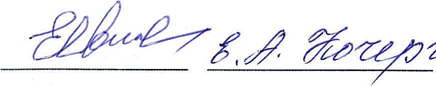 Е. А. Кочерг